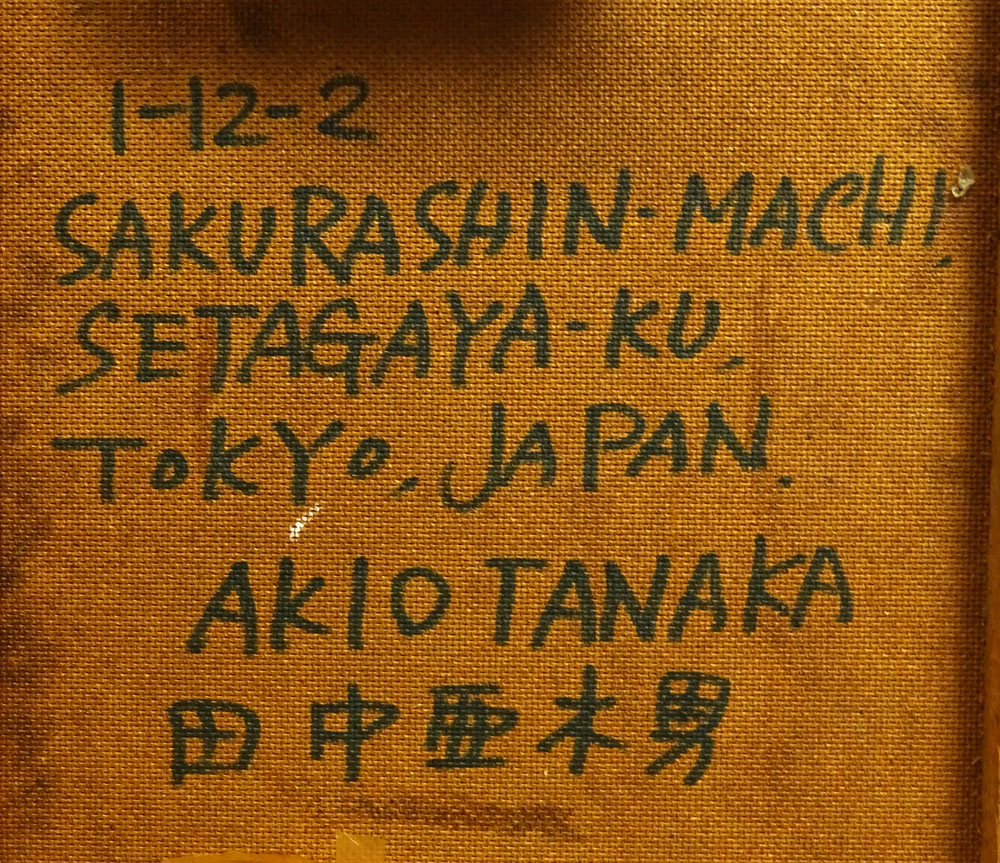 1-12-2
SAKURASHIN-MACHI,
SETAGAYA-KU,
TOKYO, JAPAN.
AKIO TANAKA
田中亜木男